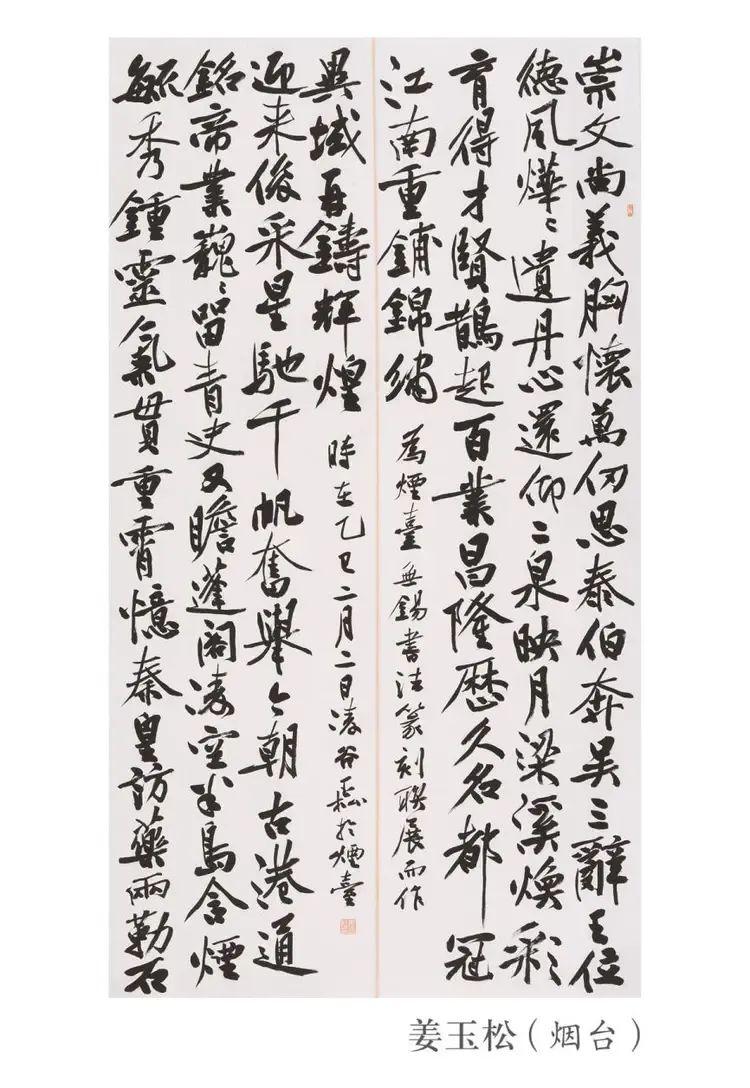 崇文尚義胸懷萬仞思泰伯奔吳三辭王位
德風燁〻遺丹心還仰二泉映月梁溪煥彩
育得才賢鵲起百業昌隆歷久名都冠
江南重鋪錦繡
為煙臺無錫書法篆刻聯展而作
毓秀鍾靈氣貫重霄憶秦皇訪藥兩勒石
銘帝業巍〻留青史又瞻蓬閣凌空半島含煙
迎來俊采星馳千帆奮舉今朝古港通
異域再鑄輝煌
時在乙巳二月二日凌谷玉松於煙臺
姜玉松（烟台）